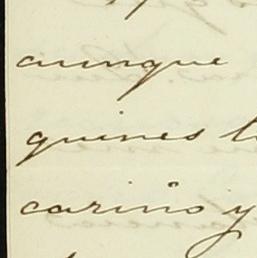 aunque
quines
cariño y